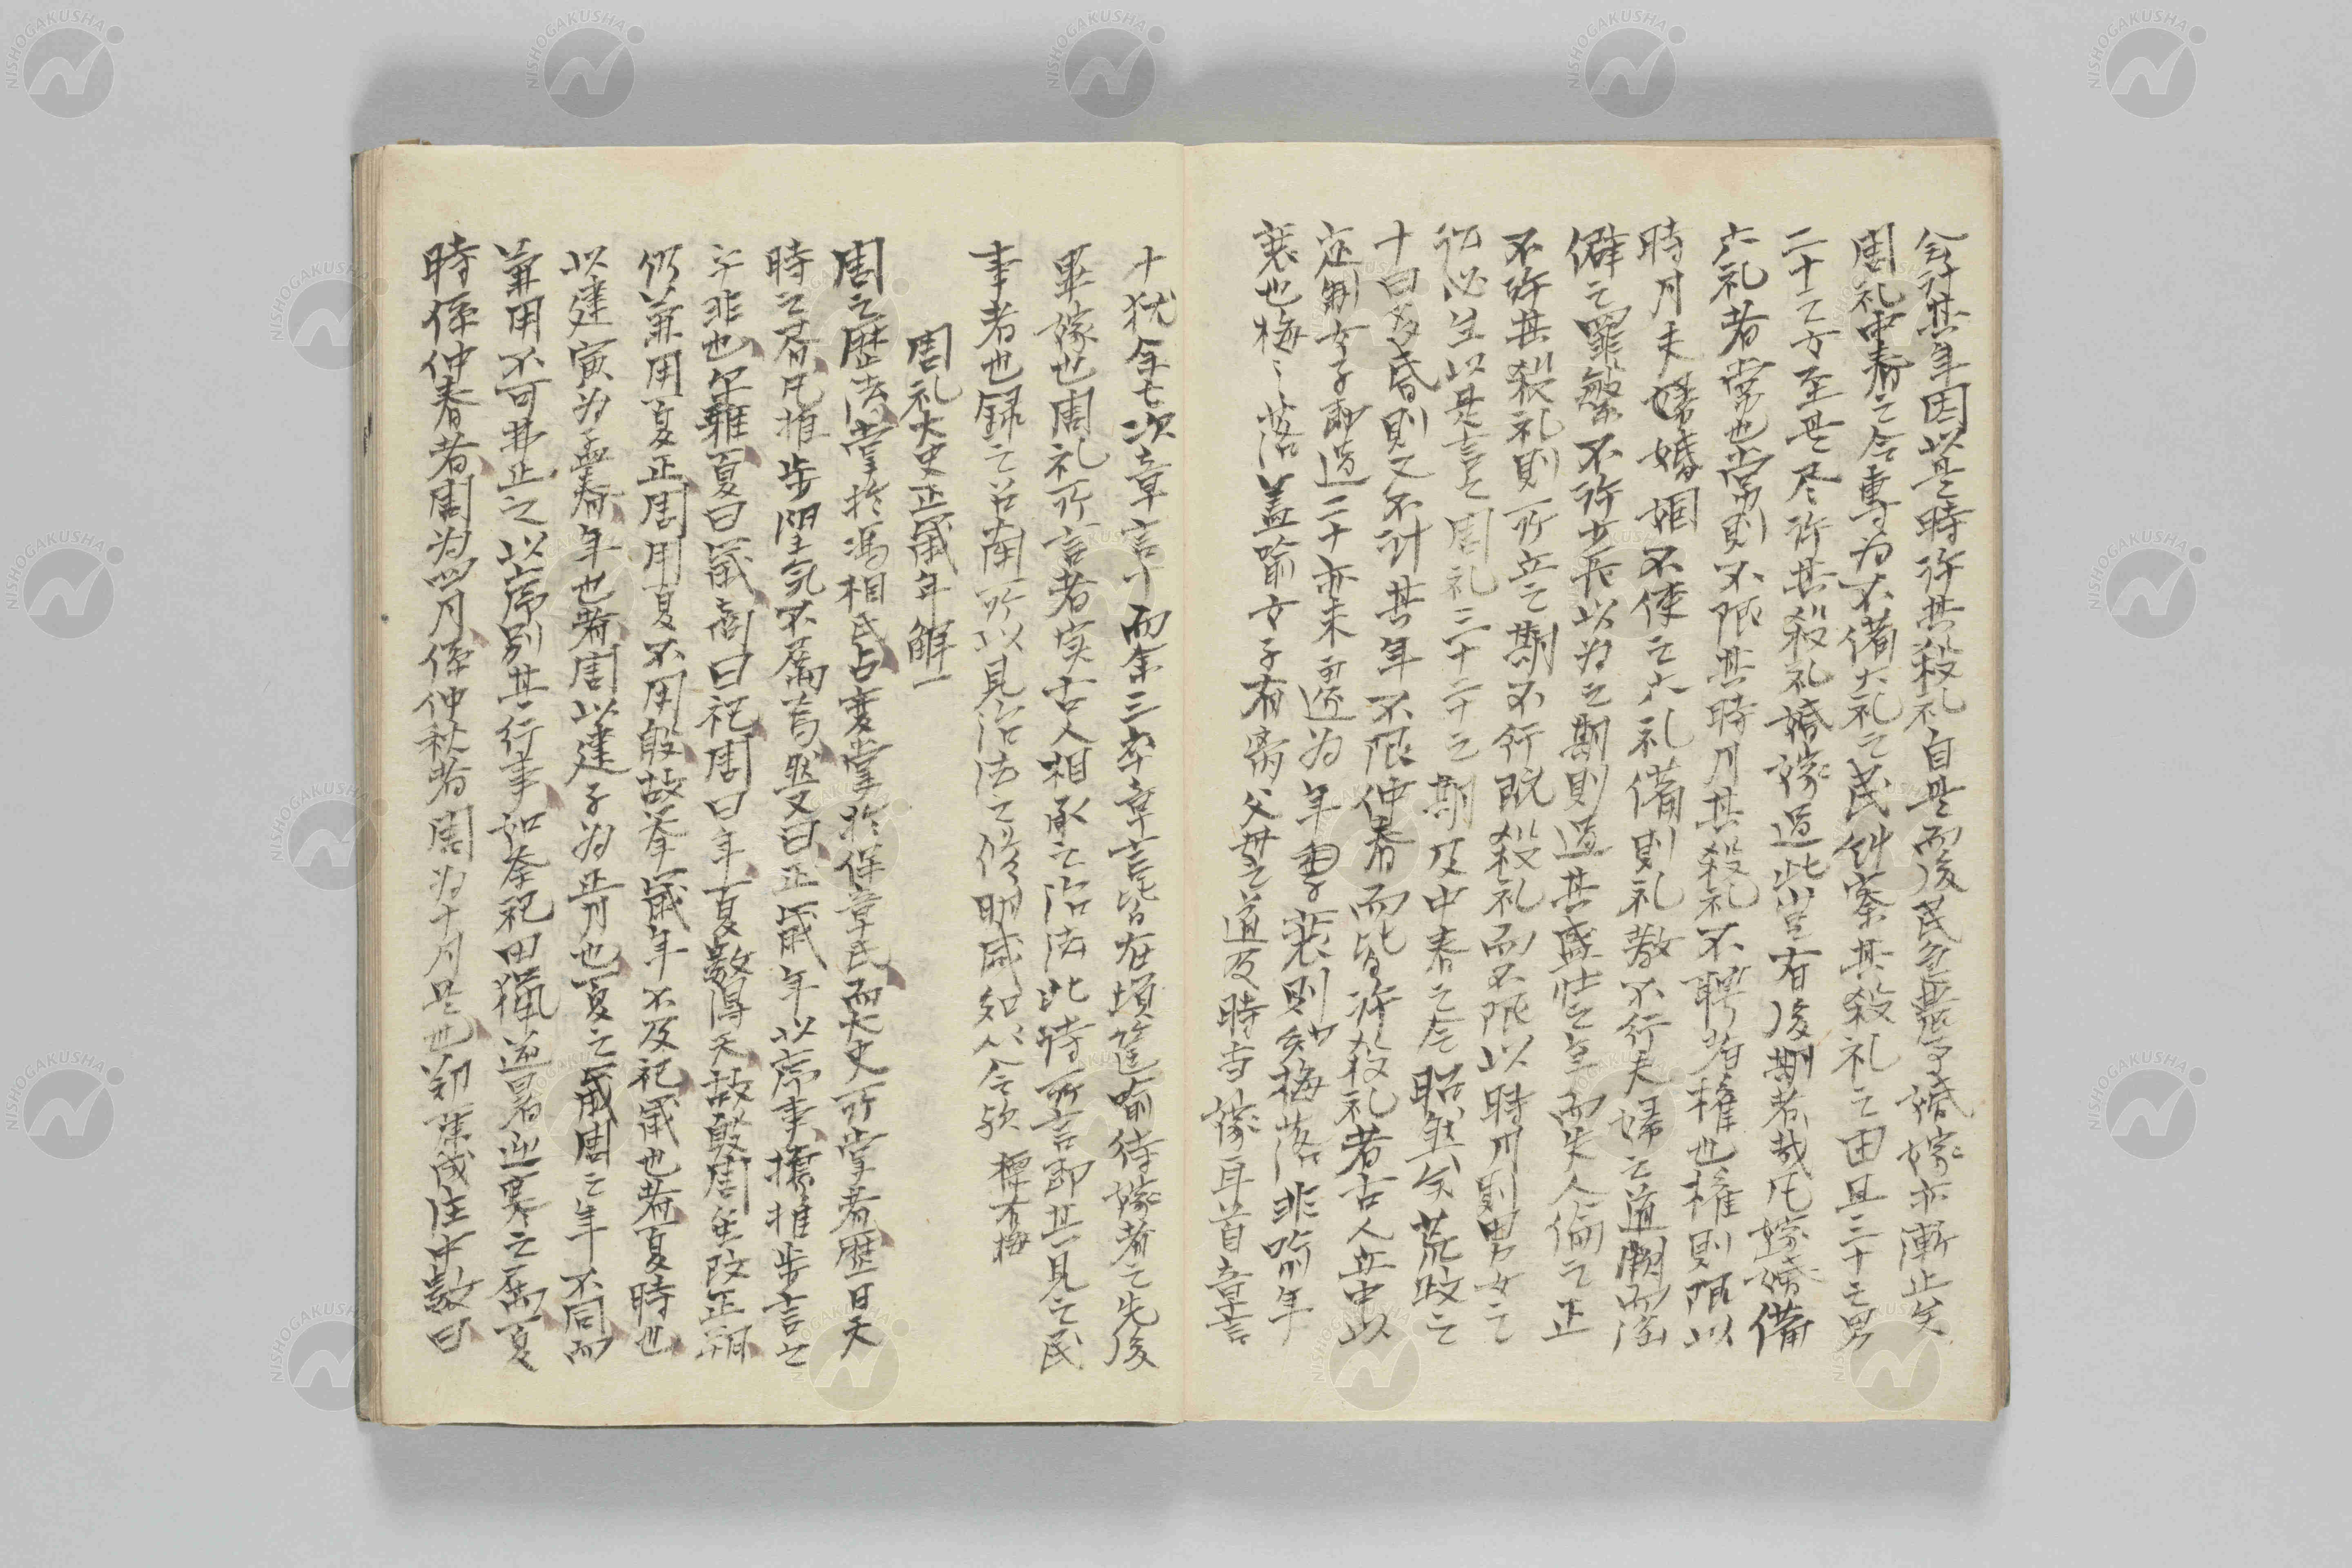 会計其年因以是時許其殺礼自是而後民無長不婚嫁亦漸止矣
周礼中春之令專為不備六礼之民糾察其殺礼之由且三十之男
二十之女至是尽許其殺礼婚嫁過此豈有後期者哉凡嫁婚備
六礼者常也常則不限其時月其殺礼不聘者権也権則限以
時月夫婦婚姻不使之六礼備則礼教不行夫婦之道闕而淫
僻之罪繁不許少長以為之期則過其盛壮之年而失人倫之正
不許其殺礼則所立之期不行既殺礼而不限以時月則男女之
訟必生以是言之周礼三十二十之期及中春之令昭然矣荒政之
十曰多昏則又不計其年不限仲春而皆許殺礼者古人立中以
定制女子即過二十亦未遽為年衰則知梅落非喻年
衰也梅之落蓋喻女子有离父母之道及時当嫁耳首章言
十猶余七次章言十而余三卒章言皆在頃筐喻待嫁者之先後
畢嫁也周礼所言者実古人相承之治法此詩所言即其見之民
事者也録之召南所以見治法之修明咸知从令歟 摽有梅
周礼大史正歳年解一
周之歴法掌於馮相氏占変掌於保章氏而大史所掌者歴日天
時之属凡推步陰气不属焉然又曰正歳年以序事攄推步言之
乎非也尔雅夏曰歳商曰祀周曰年夏数得天故殷周虽改正朔
仍兼用夏正周用夏不用殷故挙歳年不及祀歳也者夏時也
以建寅為孟春年也者周以建子為正月也夏之歳周之年不同而
兼用不可弗正之以序別其行事如祭祀田猟逆暑迎寒之属夏
時係仲春者周為四月係仲秋者周為十月是也鄭康成注中数曰